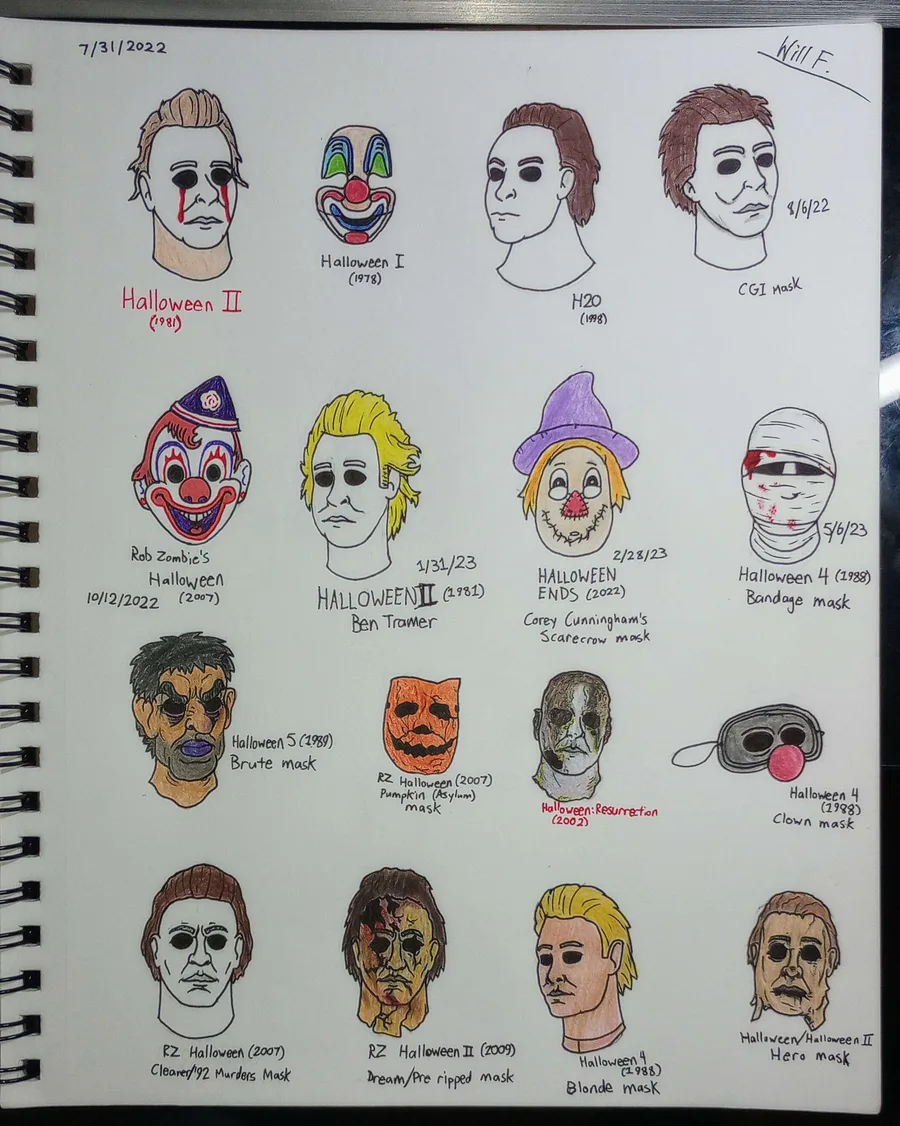 7/31/2022
Will F.
Halloween II
(1981)
Halloween I
(1978)
H20
(1998)
8/6/22
CGI mask
Rob Zombie's
Halloween
10/12/2022 (2007)
1/31/23
HALLOWEEN II (1981)
Ben Tramer
2/28/23
HALLOWEEN
ENDS (2022)
Corey Cunningham's
Scarecrow mask
5/6/23
Halloween 4 (1988)
Bandage mask
Halloween 5 (1989)
Brute mask
RZ Halloween (2007)
Pumpkin (Asylum)
mask
Halloween: Resurrection
(2002)
Halloween 4
(1988)
Clown mask
RZ Halloween (2007)
Cleaner/'92 Murders Mask
RZ Halloween II (2009)
Dream/Pre ripped mask
Halloween 4
(1988)
Blonde mask
Halloween/Halloween II
Hero mask